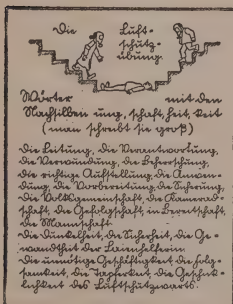 Die Luft-
schutz-
übung.
Wörter mit den
Nachsilben ung, schaft, heit, keit
(man schreibt sie groß)
Die Leitung, die Verantwortung,
die Verwundung, die Beherrschung,
die richtige Aufstellung, die Anwen-
dung, die Vorbereitung, die Sicherung,
die Volksgemeinschaft, die Kamerad-
schaft, die Gefolgschaft, in Bereitschaft,
die Mannschaft.
Die Dunkelheit, die Sicherheit, die Ge-
wandtheit der Laienhelferin.
Die unnötige Geschäftigkeit, die Folg-
samkeit, die Tapferkeit, die Geschick-
lichkeit des Luftschutzwarts.